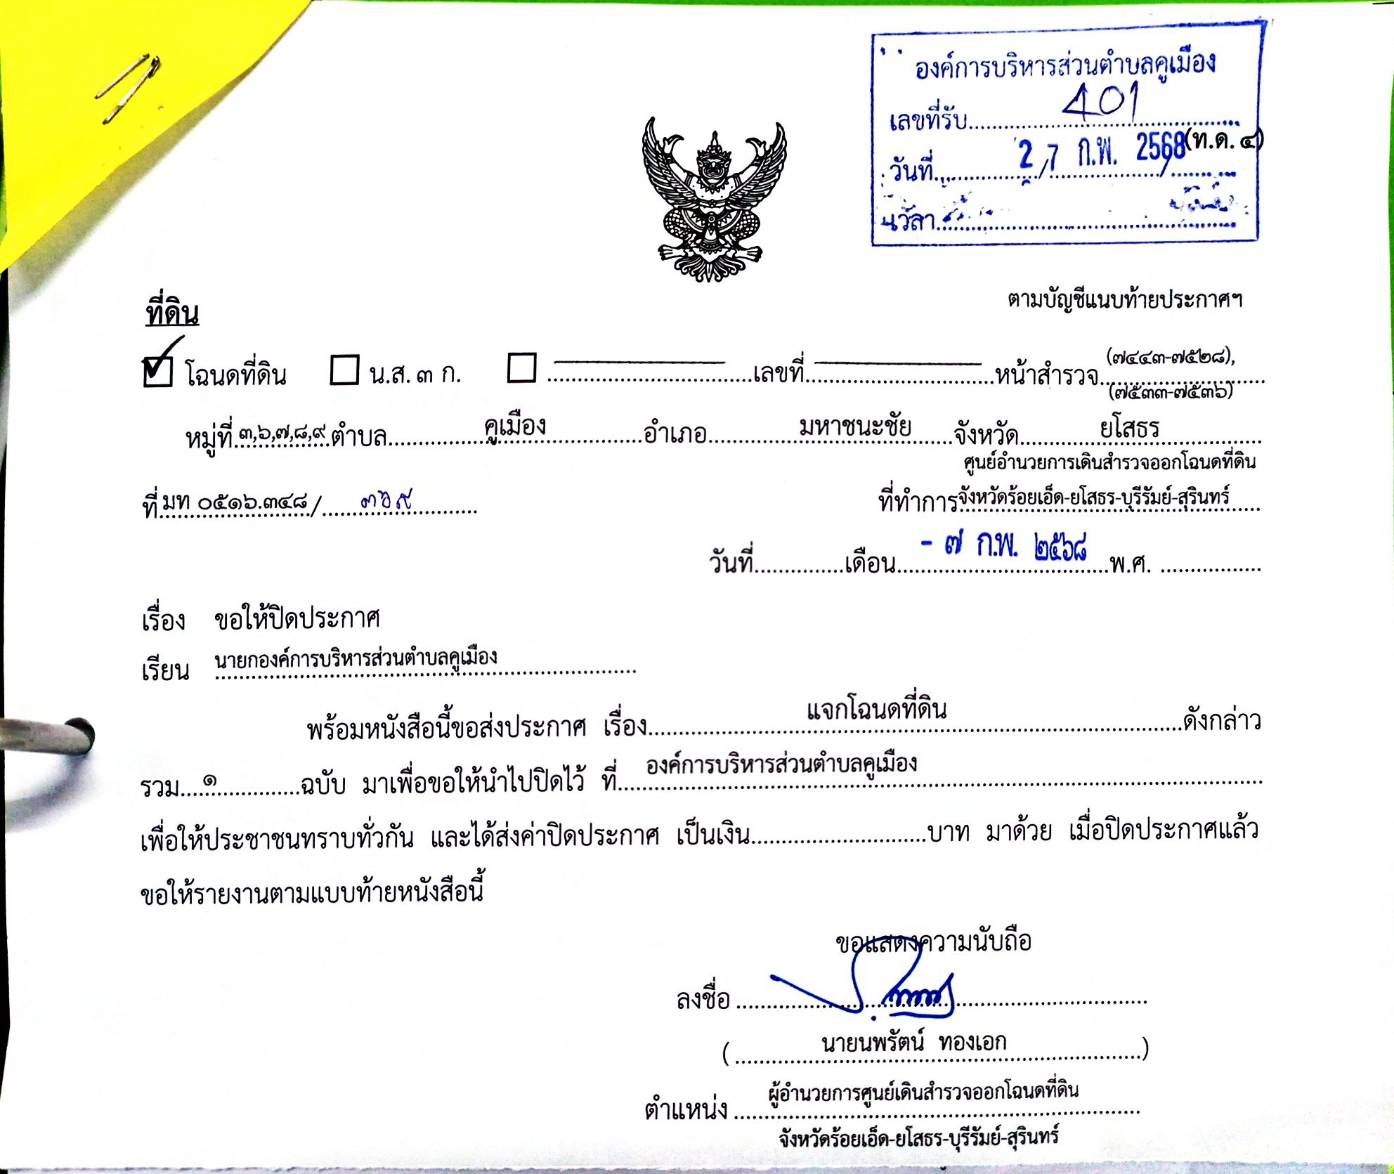 องค์การบริหารส่วนตำบลคูเมือง
เลขที่รับ 401
วันที่ 27 ก.พ. 2568
(ท.ด. ๔)
เวลา
ที่ดิน
ตามบัญชีแนบท้ายประกาศฯ
โฉนดที่ดิน น.ส. ๓ ก. เลขที่ หน้าสำรวจ (๗๔๔๓-๗๕๒๘),
(๗๕๓๓-๗๕๓๖)
หมู่ที่ ๓,๖,๗,๘,๙ ตำบล คูเมือง อำเภอ มหาชนะชัย จังหวัด ยโสธร
ศูนย์อำนวยการเดินสำรวจออกโฉนดที่ดิน
ที่ มท ๐๕๑๖.๓๔๘/ ๓๖๙ ที่ทำการ จังหวัดร้อยเอ็ด-ยโสธร-บุรีรัมย์-สุรินทร์
วันที่ เดือน - ๗ ก.พ. ๒๕๖๘ พ.ศ.
เรื่อง ขอให้ปิดประกาศ
เรียน นายกองค์การบริหารส่วนตำบลคูเมือง
พร้อมหนังสือนี้ขอส่งประกาศ เรื่อง แจกโฉนดที่ดิน ดังกล่าว
รวม ๑ ฉบับ มาเพื่อขอให้นำไปปิดไว้ ที่ องค์การบริหารส่วนตำบลคูเมือง
เพื่อให้ประชาชนทราบทั่วกัน และได้ส่งค่าปิดประกาศ เป็นเงิน บาท มาด้วย เมื่อปิดประกาศแล้ว
ขอให้รายงานตามแบบท้ายหนังสือนี้
ขอแสดงความนับถือ
ลงชื่อ
( นายนพรัตน์ ทองเอก )
ตำแหน่ง ผู้อำนวยการศูนย์เดินสำรวจออกโฉนดที่ดิน
จังหวัดร้อยเอ็ด-ยโสธร-บุรีรัมย์-สุรินทร์